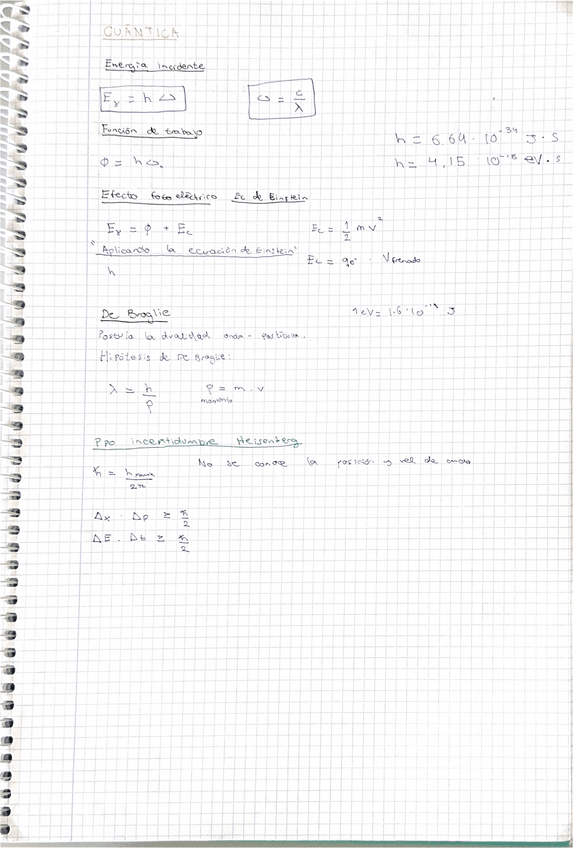 CUÁNTICA
Energía incidente
Eγ = h ω
ω = c/λ
Función de trabajo
h = 6,64 · 10⁻³⁴ J · s
h = 4,15 10⁻¹⁵ eV · s
Φ = h ω₀
Efecto fotoeléctrico Ec de Einstein
Eγ = Φ + Ec
Ec = 1/2 m v²
"Aplicando la ecuación de Einstein"
Ec = qe⁻ · Vfrenado
h
De Broglie
1 eV = 1.6 · 10⁻¹⁹ J
Postula la dualidad onda - partícula.
Hipótesis de De Broglie:
λ = h/p
p = m · v
momento
Ppo incertidumbre Heisenberg
No se conoce la posición y vel de
ħ = h/2π
Δx · Δp ≥ ħ/2
ΔE · Δt ≥ ħ/2